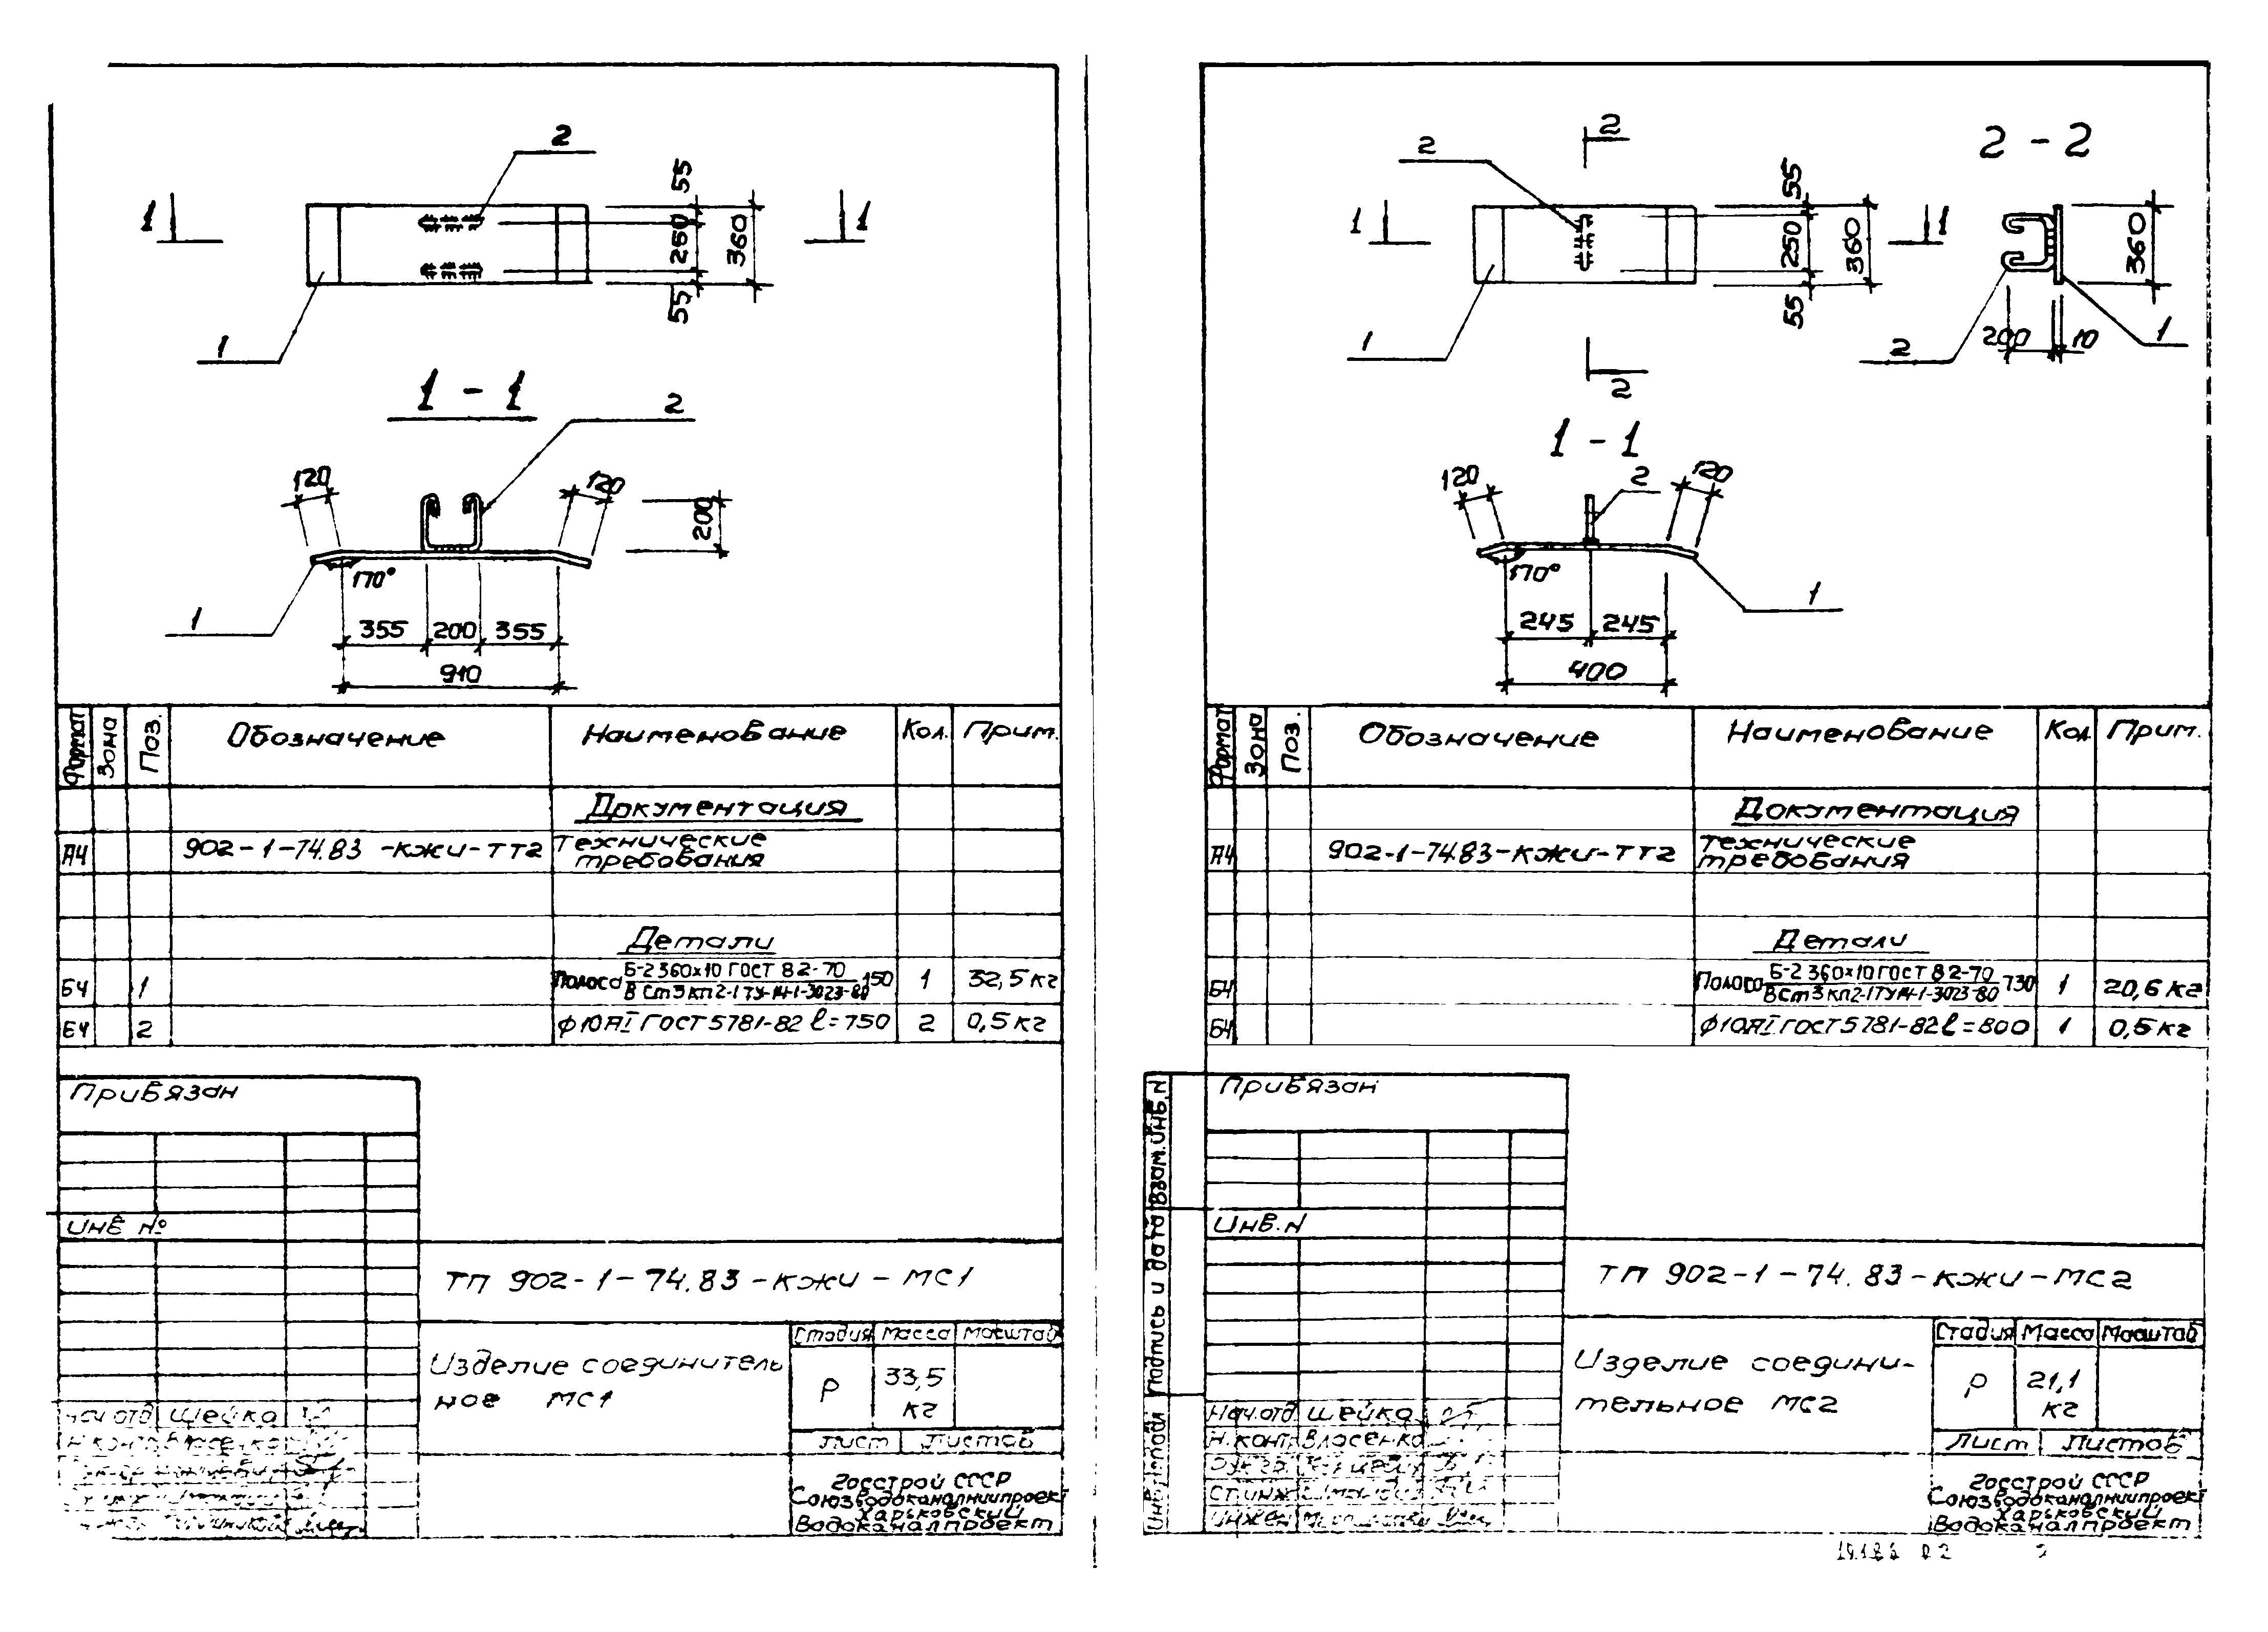 2
1
1
55
250
360
55
1
1 - 1
2
120
120
200
170°
1
355
200
355
910
Формат
Зона
Поз.
Обозначение
Наименование
Кол.
Прим.
Документация
А4
902-1-74.83 -КЖИ-ТТ2
Технические
требования
Детали
Б4
1
Полоса
Б-2 360х10 ГОСТ 82-70
ВСт3кп2-1 ТУ-14-1-3023-80
1150
1
32,5кг
Б4
2
ф10АI ГОСТ 5781-82 ℓ=750
2
0,5кг
Привязан
ИНВ №
ТП 902-1-74.83-КЖИ-МС1
Изделие соединитель
ное МС1
Стадия
Масса
Масштаб
Р
33,5
кг
Лист
Листов
Нач.отд
Шейко
Госстрой СССР
Союзводоканалниипроект
Харьковский
Водоканалпроект
2
2
2 - 2
1
1
55
250
360
55
1
2
360
200
10
2
1
2
1 - 1
120
2
120
170°
1
245
245
400
Формат
Зона
Поз.
Обозначение
Наименование
Кол
Прим.
Документация
А4
902-1-74.83-КЖИ-ТТ2
Технические
требования
Детали
Б4
Полоса
Б-2 360х10 ГОСТ 82-70
ВСт3кп2-1 ТУ14-1-3023-80
730
1
20,6кг
Б4
ф10АI ГОСТ 5781-82 ℓ=800
1
0,5кг
Привязан
Взам.инв.N
Инв.N
Подпись и дата
ТП 902-1-74.83-КЖИ-МС2
Изделие соедини-
тельное МС2
Стадия
Масса
Масштаб
Р
21,1
кг
Лист
Листов
Нач.отд
Шейко
Н.конт
Власенко
Рук.гр.
Ст.инж
Инжен
Госстрой СССР
Союзводоканалниипроект
Харьковский
Водоканалпроект